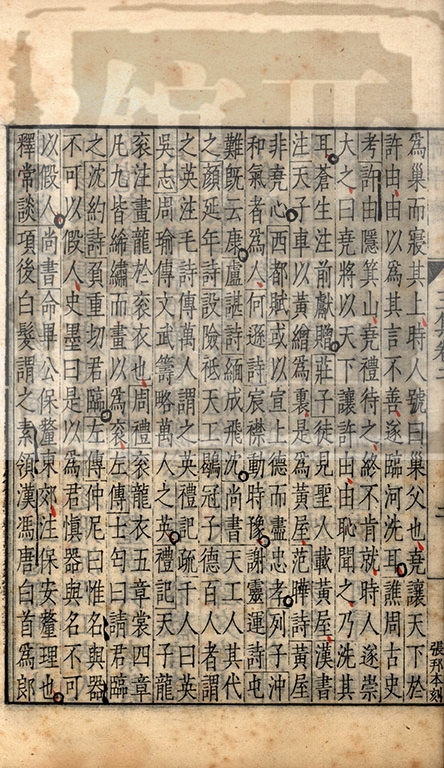 為巢而寢其上時人號曰巢父也堯讓天下於
許由由以為其言不善遂臨河洗耳譙周古史
考許由隱箕山堯禮待之終不肯就時人遂崇
大之曰堯將以天下讓許由由恥聞之乃洗其
耳蒼生注前獻贈莊子徒見聖人載黃屋漢書
注天子車以黃繒為裏是為黃屋范曄詩黃屋
非堯心西都賦或以宣上德而盡忠孝列子沖
和氣者為人何遜詩宸襟動時豫謝靈運詩屯
難既云康盧諶詩緬成飛沈尚書天工人其代
之顏延年詩設險祗天工鶡冠子德百人者謂
之英注毛詩傳萬人謂之英禮記疏千人曰英
吳志周瑜傳文武籌略萬人之英禮記天子龍
衮注畫龍於衮衣也周禮衮龍衣五章裳四章
凡九皆絺繡而畫以為衮左傳士匄曰請君臨
之沈約詩頁重切君臨左傳仲尼曰惟名與器
不可以假人史墨曰是以為君慎器與名不可
以假人尚書命畢公保釐東郊注保安釐理也
釋常談項後白髮謂之素領漢馮唐白首為郎
張邦本刻